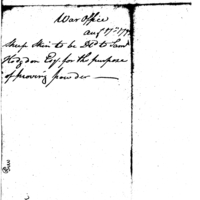 War Office
Aug 17th 179
Sheep Skin to be Dd to Saml
Hodgdon Esq. for the purpose
of proving powder —